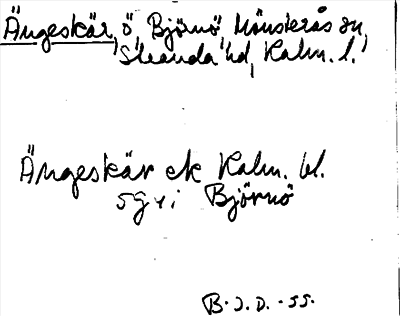 Ängeskär, ö, Björnö, Mönsterås sn,
Stranda hd, Kalm. l.
Ängeskär ek Kalm. bl.
5g4i Björnö
B.I.D. -55.